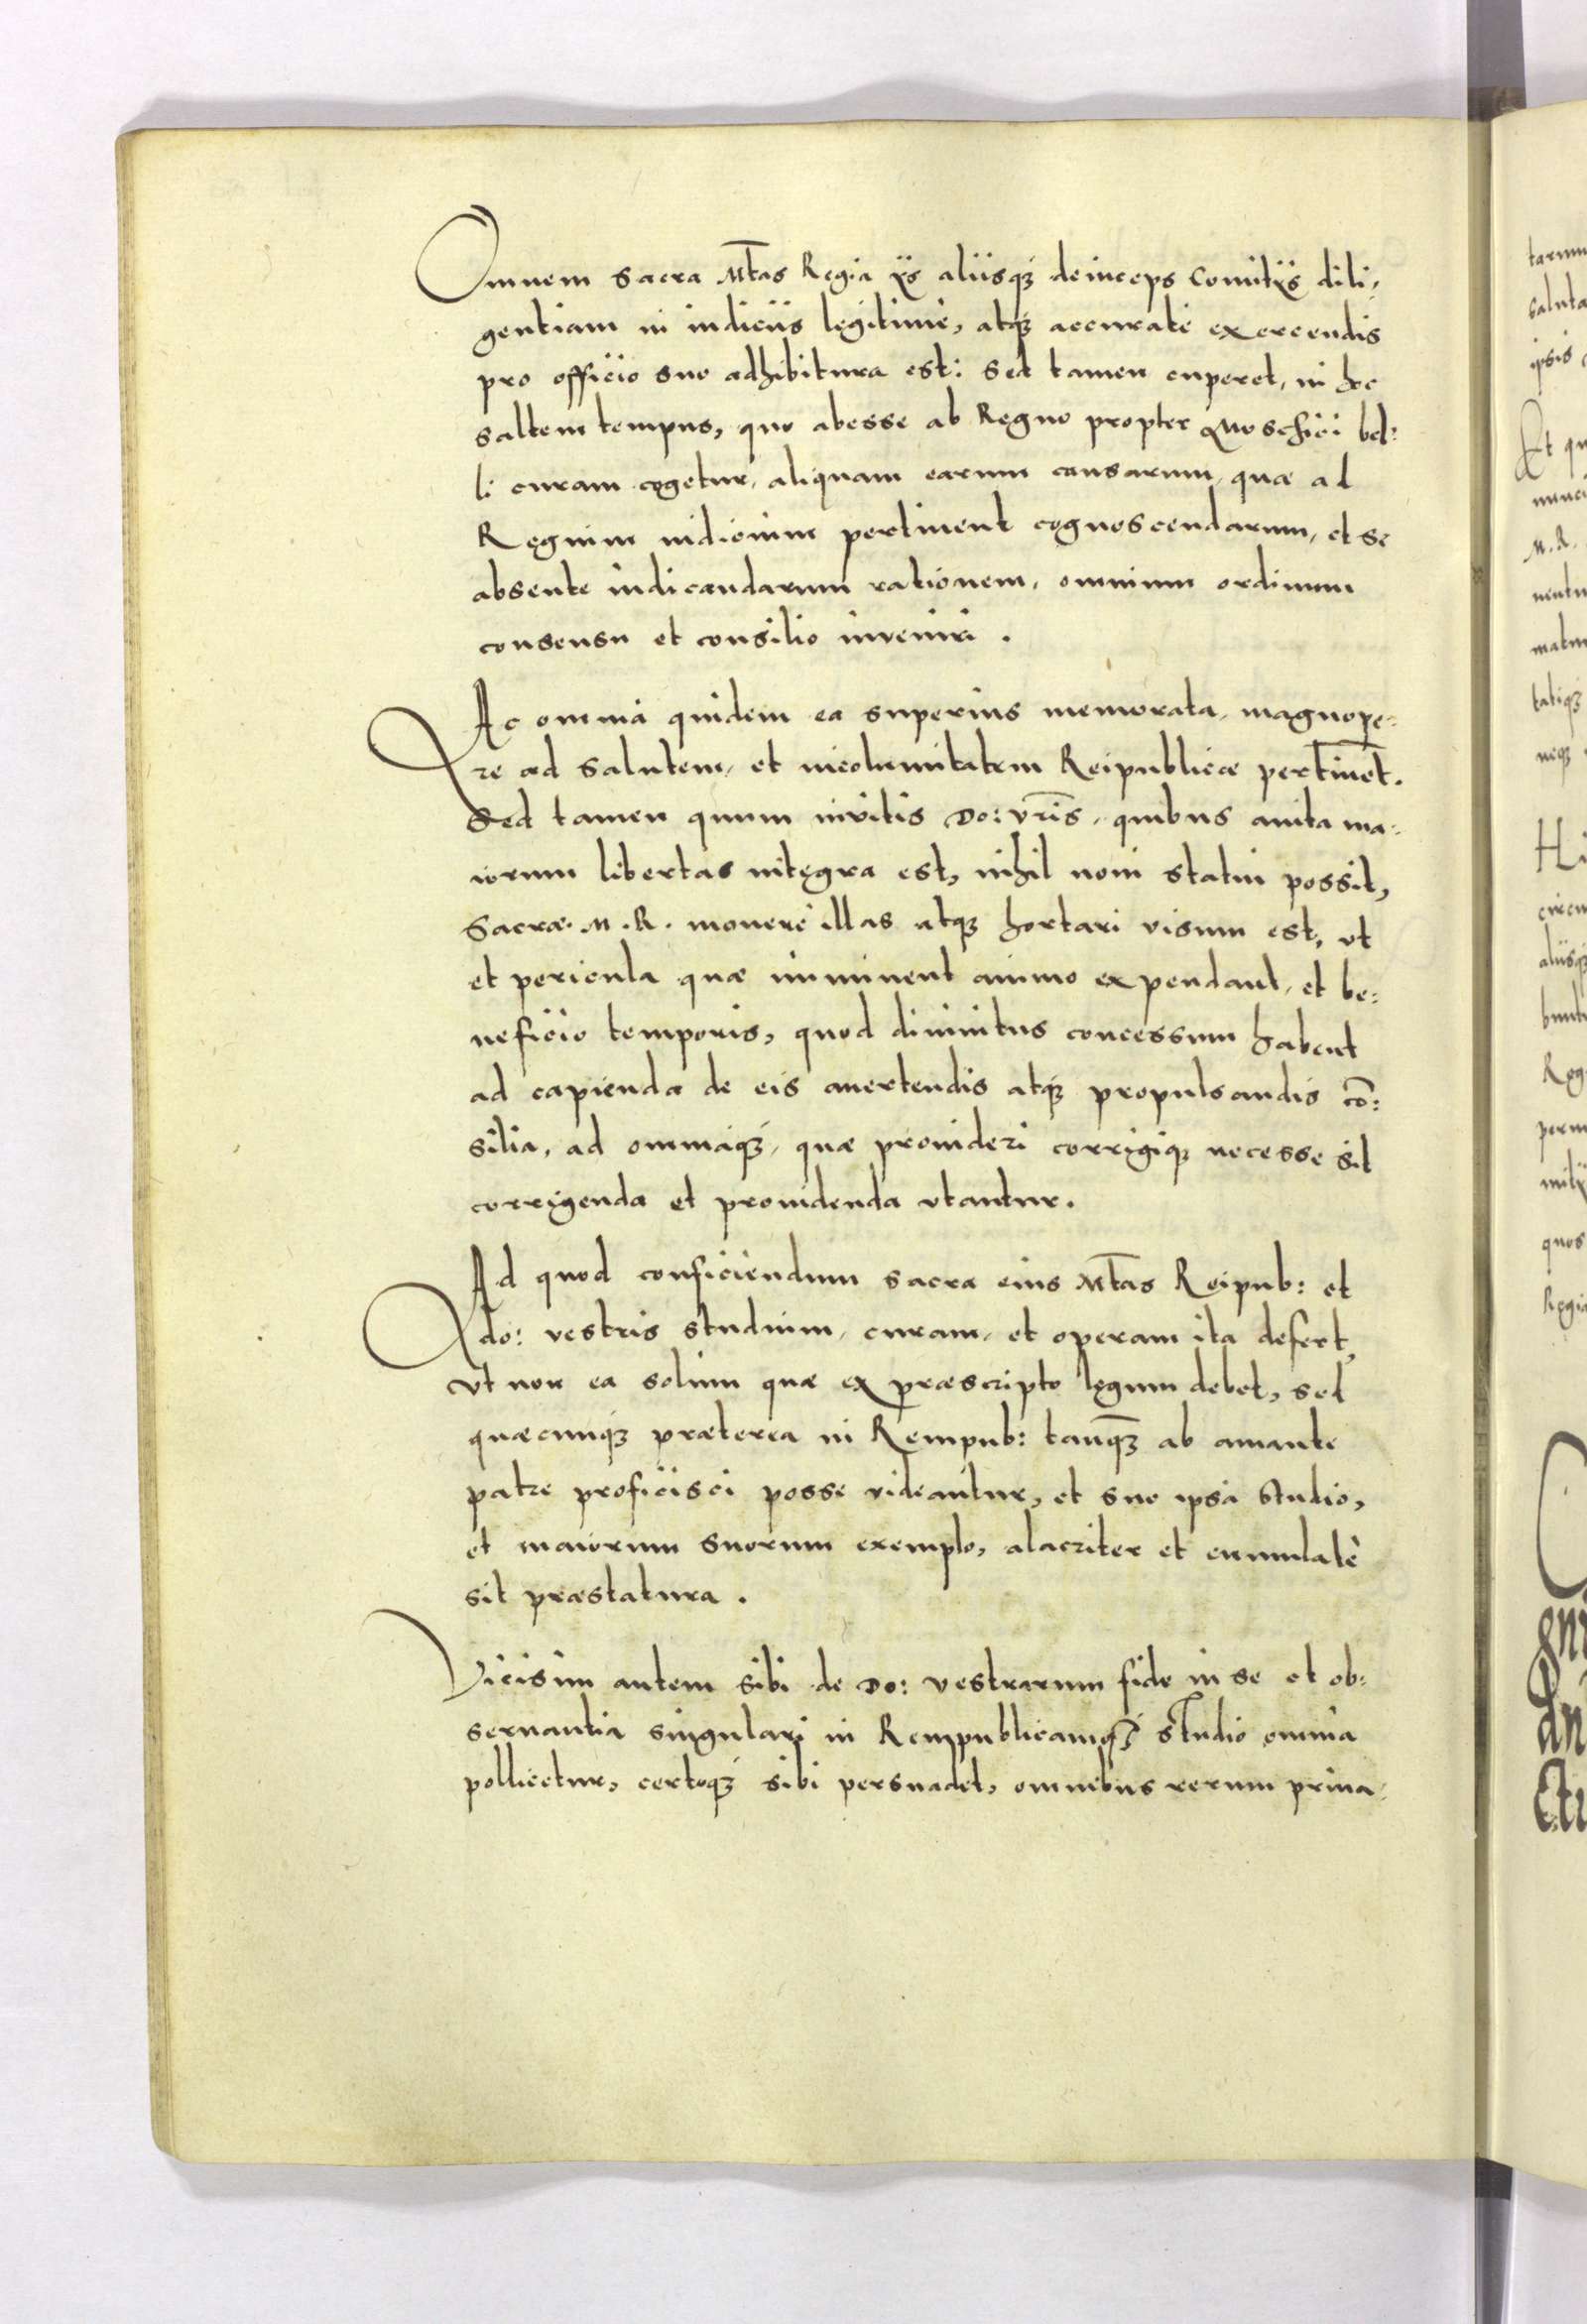 Omnem sacra Mtas Regia ijs alijsque deinceps Comitijs dili-
gentiam in iudiciis legitimè, atque accuratè exercendis
pro officio suo adhibitura est: Sed tamen cuperet, in hoc
saltem tempus, quo abesse ab Regno propter Moschici bel:
li curam cogetur, aliquam earum causarum, quæ ad
Regium iudicium pertinent cognoscendarum, et se
absente iudicandarum rationem, omnium ordinum
consensu et consilio inveniri.
Ac omnia quidem ea superius memorata, magnope-
re ad salutem, et incolumitatem Reipublicæ pertinēt.
Sed tamen quum invitis Do: vr̄is, quibus avita ma-
iorum libertas integra est, nihil novi statui possit,
Sacræ. M. R. monere illas atque hortari visum est, vt
et pericula quæ imminent animo expendant, et be:
neficio temporis, quod divinitus concessum habent
ad capienda de eis auertendis atque propulsandis cō:
silia, ad omniaque, quæ prouideri corrigique necesse sit
corrigenda et prouidenda vtantur.
Ad quod conficiendum sacra eius Mtas Reipub: et
do: vestris studium, curam, et operam ita defert,
vt non ea solum quæ ex præscripto legum debet, sed
quæcunque præterea in Rempub: tanquā ab amante
patre proficisci posse videantur, et suo ipsa studio,
et maiorum suorum exemplo, alacriter et cumulatè
sit præstatura.
Vicisim autem sibi de Do: vestrarum fide in se et ob:
seruantia singulari in Rempublicamque studio omnia
pollicetur, certoque sibi persuadet, omnibus rerum priua-